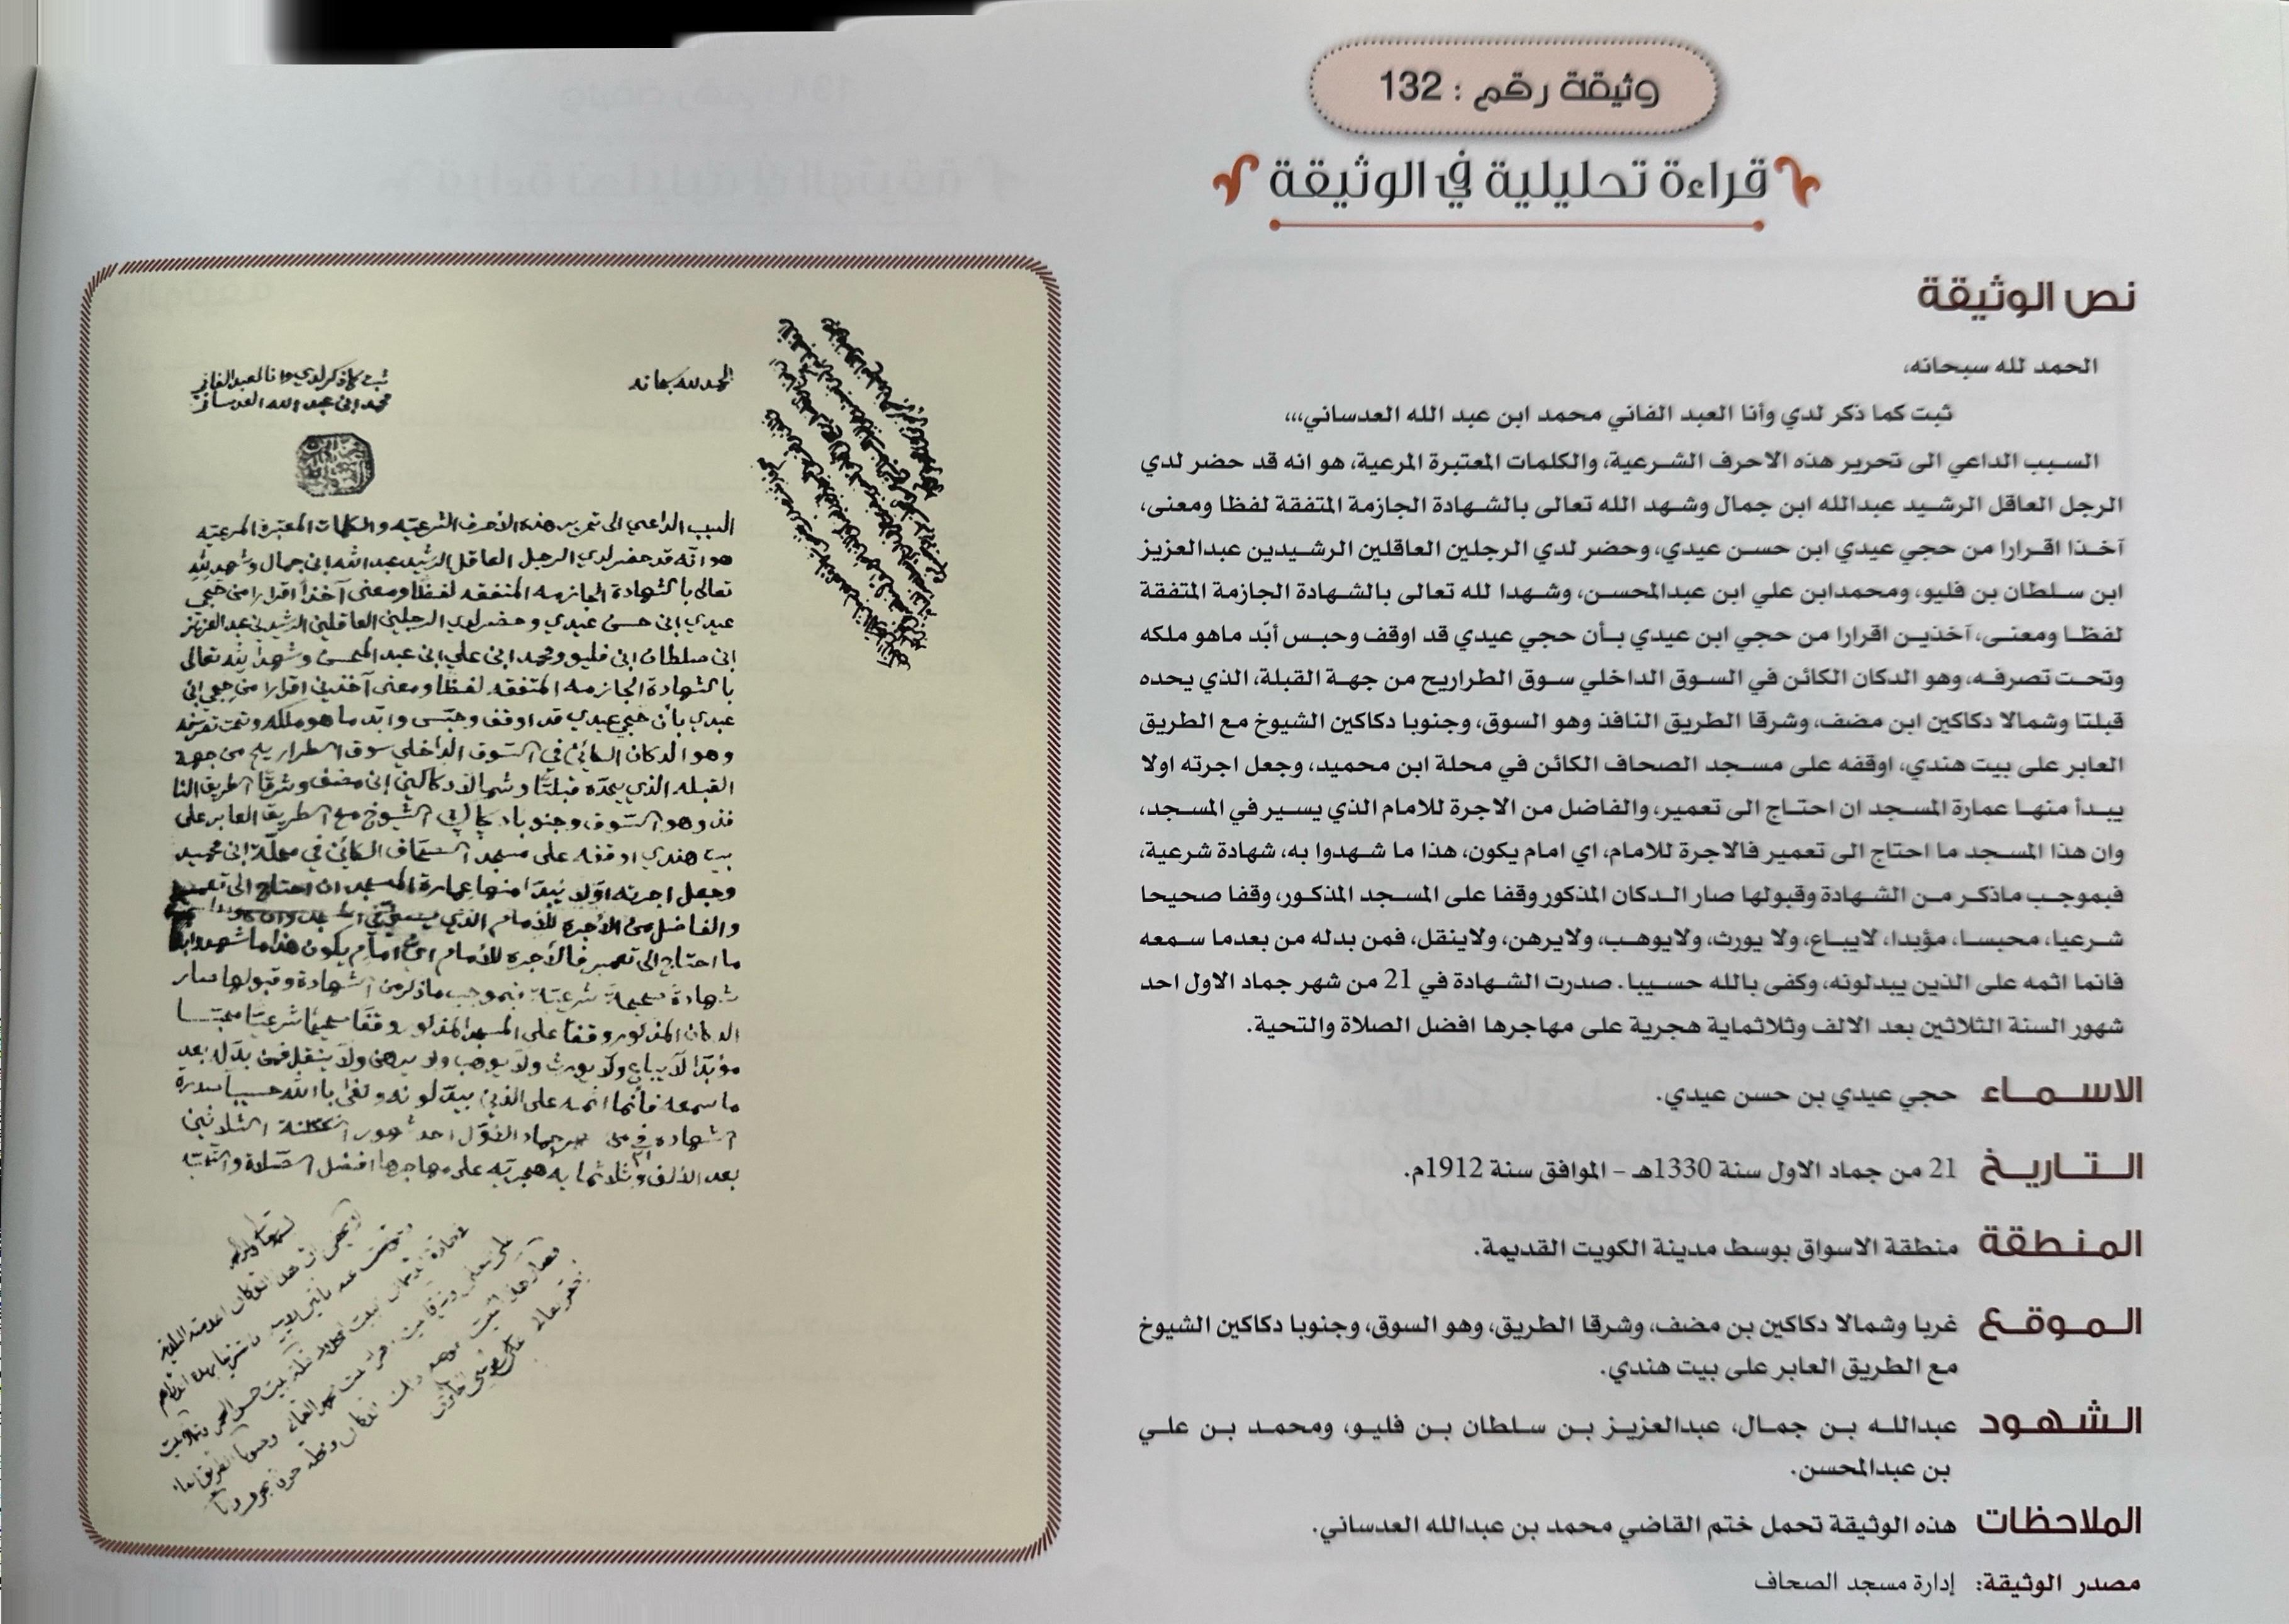 وثيقة رقم : 132
قراءة تحليلية في الوثيقة
نص الوثيقة
الحمد لله سبحانه،
ثبت كما ذكر لدي وأنا العبد الفاني محمد ابن عبد الله العدساني،،،
السبب الداعي الى تحرير هذه الاحرف الشرعية، والكلمات المعتبرة المرعية، هو انه قد حضر لدي
الرجل العاقل الرشيد عبدالله ابن جمال وشهد الله تعالى بالشهادة الجازمة المتفقة لفظا ومعنى،
آخذا اقرارا من حجي عيدي ابن حسن عيدي، وحضر لدي الرجلين العاقلين الرشيدين عبدالعزيز
ابن سلطان بن فليو، ومحمدابن علي ابن عبدالمحسن، وشهدا لله تعالى بالشهادة الجازمة المتفقة
لفظا ومعنى، آخذين اقرارا من حجي ابن عيدي بأن حجي عيدي قد اوقف وحبس أبّد ماهو ملكه
وتحت تصرفه، وهو الدكان الكائن في السوق الداخلي سوق الطراريح من جهة القبلة، الذي يحده
قبلتا وشمالا دكاكين ابن مضف، وشرقا الطريق النافذ وهو السوق، وجنوبا دكاكين الشيوخ مع الطريق
العابر على بيت هندي، اوقفه على مسجد الصحاف الكائن في محلة ابن محميد، وجعل اجرته اولا
يبدأ منها عمارة المسجد ان احتاج الى تعمير، والفاضل من الاجرة للامام الذي يسير في المسجد،
وان هذا المسجد ما احتاج الى تعمير فالاجرة للامام، اي امام يكون، هذا ما شهدوا به، شهادة شرعية،
فبموجب ماذكر من الشهادة وقبولها صار الدكان المذكور وقفا على المسجد المذكور، وقفا صحيحا
شرعيا، محبسا، مؤبدا، لايباع، ولا يورث، ولايوهب، ولايرهن، ولاينقل، فمن بدله من بعدما سمعه
فانما اثمه على الذين يبدلونه، وكفى بالله حسيبا. صدرت الشهادة في 21 من شهر جماد الاول احد
شهور السنة الثلاثين بعد الالف وثلاثماية هجرية على مهاجرها افضل الصلاة والتحية.
الاسماء حجي عيدي بن حسن عيدي.
التاريخ 21 من جماد الاول سنة 1330هـ – الموافق سنة 1912م.
المنطقة منطقة الاسواق بوسط مدينة الكويت القديمة.
الموقع غربا وشمالا دكاكين بن مضف، وشرقا الطريق، وهو السوق، وجنوبا دكاكين الشيوخ
مع الطريق العابر على بيت هندي.
الشهود عبدالله بن جمال، عبدالعزيز بن سلطان بن فليو، ومحمد بن علي
بن عبدالمحسن.
الملاحظات هذه الوثيقة تحمل ختم القاضي محمد بن عبدالله العدساني.
مصدر الوثيقة: إدارة مسجد الصحاف
الحمد لله سبحانه
ثبت كما ذكر لدي وانا العبد الفاني
محمد ابن عبد الله العدساني
السبب الداعي الى تحرير هذه الأحرف الشرعيه والكلمات المعتبرة المرعيه
هو انه قد حضر لدي الرجل العاقل الرشيد عبد الله ابن جمال وشهد لله
تعالى بالشهادة الجازمه المتفقه لفظا ومعنى آخذا اقرارا من حجي
عيدي ابن حسن عيدي وحضر لدي الرجلين العاقلين الرشيدين عبد العزيز
ابن سلطان ابن فليو ومحمد ابن علي ابن عبد المحسن وشهدا لله تعالى
بالشهادة الجازمه المتفقه لفظا ومعنى آخذين اقرارا من حجي ابن
عيدي بأن حجي عيدي قد اوقف وحبس وابد ما هو ملكه وتحت تصرفه
وهو الدكان الكائن في السوق الداخلي سوق الطراريح من جهة
القبله الذي يحده قبلتا وشمالا دكاكين ابن مضف وشرقا الطريق النا
فذ وهو السوق وجنوبا دكاكين الشيوخ مع الطريق العابر على
بيت هندي اوقفه على مسجد الصحاف الكائن في محلة ابن محميد
وجعل اجرته اولا يبدا منها عمارة المسجد ان احتاج الى تعمير
والفاضل من الأجرة للأمام الذي
ما احتاج الى تعمير فالأجرة للأمام اي امام يكون هذا ما شهدوا به
شهادة صحيحة شرعية فبموجب ما ذكر من الشهادة وقبولها صار
الدكان المذكور وقفا على المسجد المذكور وقفا صحيحا شرعيا محبسا
مؤبدا لا يباع ولا يورث ولا يوهب ولا يرهن ولا ينقل فمن بدله بعد
ما سمعه فأنما اثمه على الذين يبدلونه وكفى بالله حسيبا صدرة
الشهادة في ٢١ من جماد الاول احد شهور السنة الثلاثين
بعد الألف وثلاثمايه هجريه على مهاجرها افضل الصلاة والتحيه